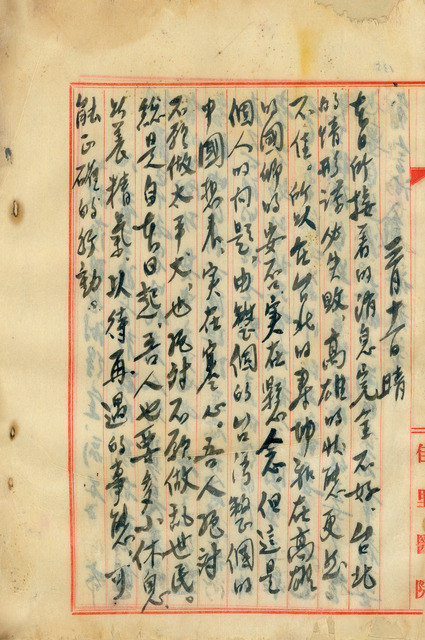 三月十一日 晴
本日所接着的消息完全不好。台北
的情形諒必失敗、高雄的狀態更加
不佳。所以在台北的  和在高雄
的國卿的安否、實在懸念。但這是
個人的問題、由整個的台湾整個的
中國想來、实在寒心。吾人絕對
不願做太平犬、也絕對不願做乱世民。
總是自本日起、吾人也要多小休息
以養精氣、以待再過的事態可
能正確的行動。
佳里醫院